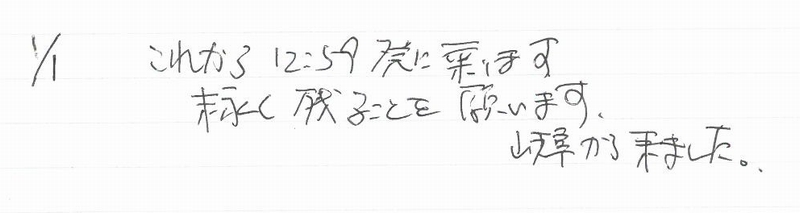 1/1 これから 12:59 発に乗ります
末永く残ることを願います.
岐阜から来ました。